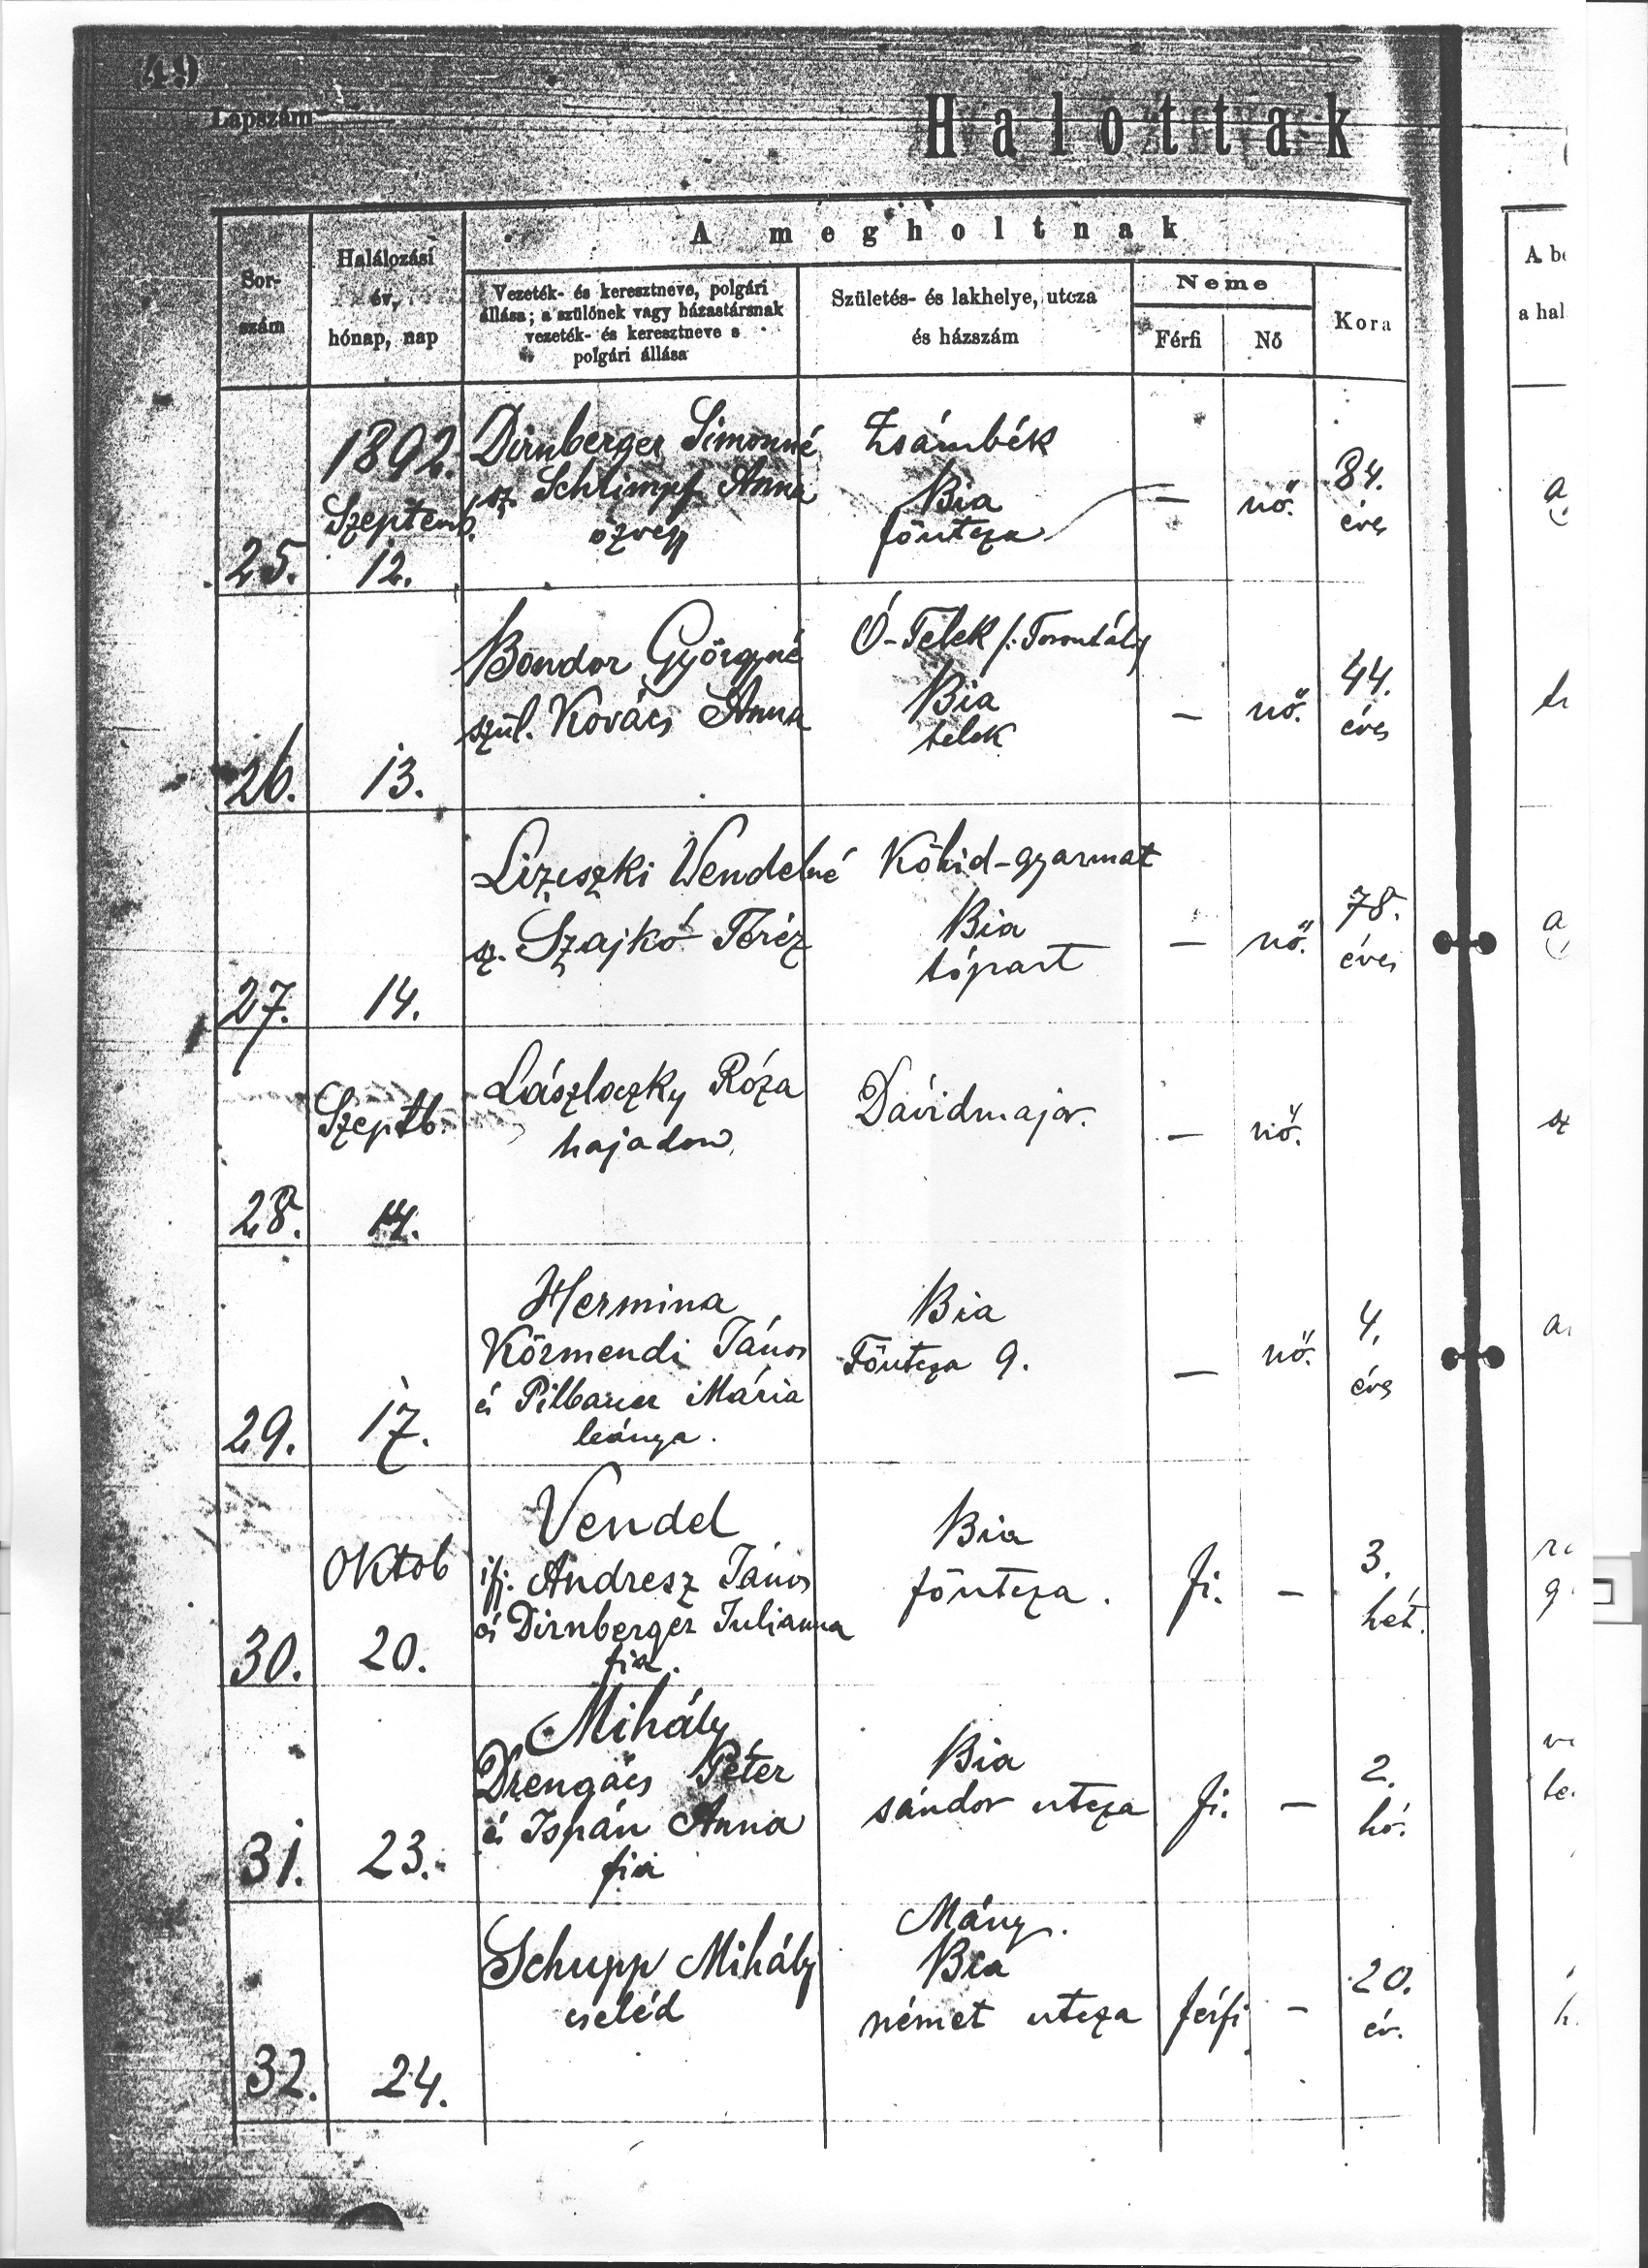 49
Lapszám
Halottak
A megholtnak
Sor-
szám
Halálozási
év,
hónap, nap
Vezeték- és keresztneve, polgári
állása; a szülőnek vagy házastársnak
vezeték- és keresztneve s
polgári állása
Születés- és lakhelye, utcza
és házszám
Neme
Férfi
Nő
Kora
A be
a hal
25.
1892.
Szeptemb.
12.
Dirnberger Simonné
sz. Schlimpf Anna
özvegy
Zsámbék
Bia
főutcza
—
nő.
84.
éves
26.
13.
Bondor Györgyné
szül. Kovács Anna
Ó-Telek /: Torontály
Bia
telek
—
nő.
44.
éves
27.
14.
Lizeszki Wendelné
sz. Szajkó Teréz
Kőhid-gyarmat
Bia
tópart
—
nő.
78.
éves
28.
Szeptb.
14.
Lászloczky Róza
hajadon
Dávidmajor.
—
nő.
29.
17.
Hermina
Körmendi János
és Pilbauer Mária
leánya.
Bia
Főutcza 9.
—
nő.
4.
éves
30.
Oktob
20.
Vendel
ifj. Andresz János
és Dirnberger Julianna
fia.
Bia
főutcza.
fi.
—
3.
hét.
31.
23.
Mihály
Drengács Péter
és Ispán Anna
fia
Bia
sándor utcza
fi.
—
2.
hó.
32.
24.
Schupp Mihály
cseléd
Mány.
Bia
német utcza
férfi
—
20.
év.